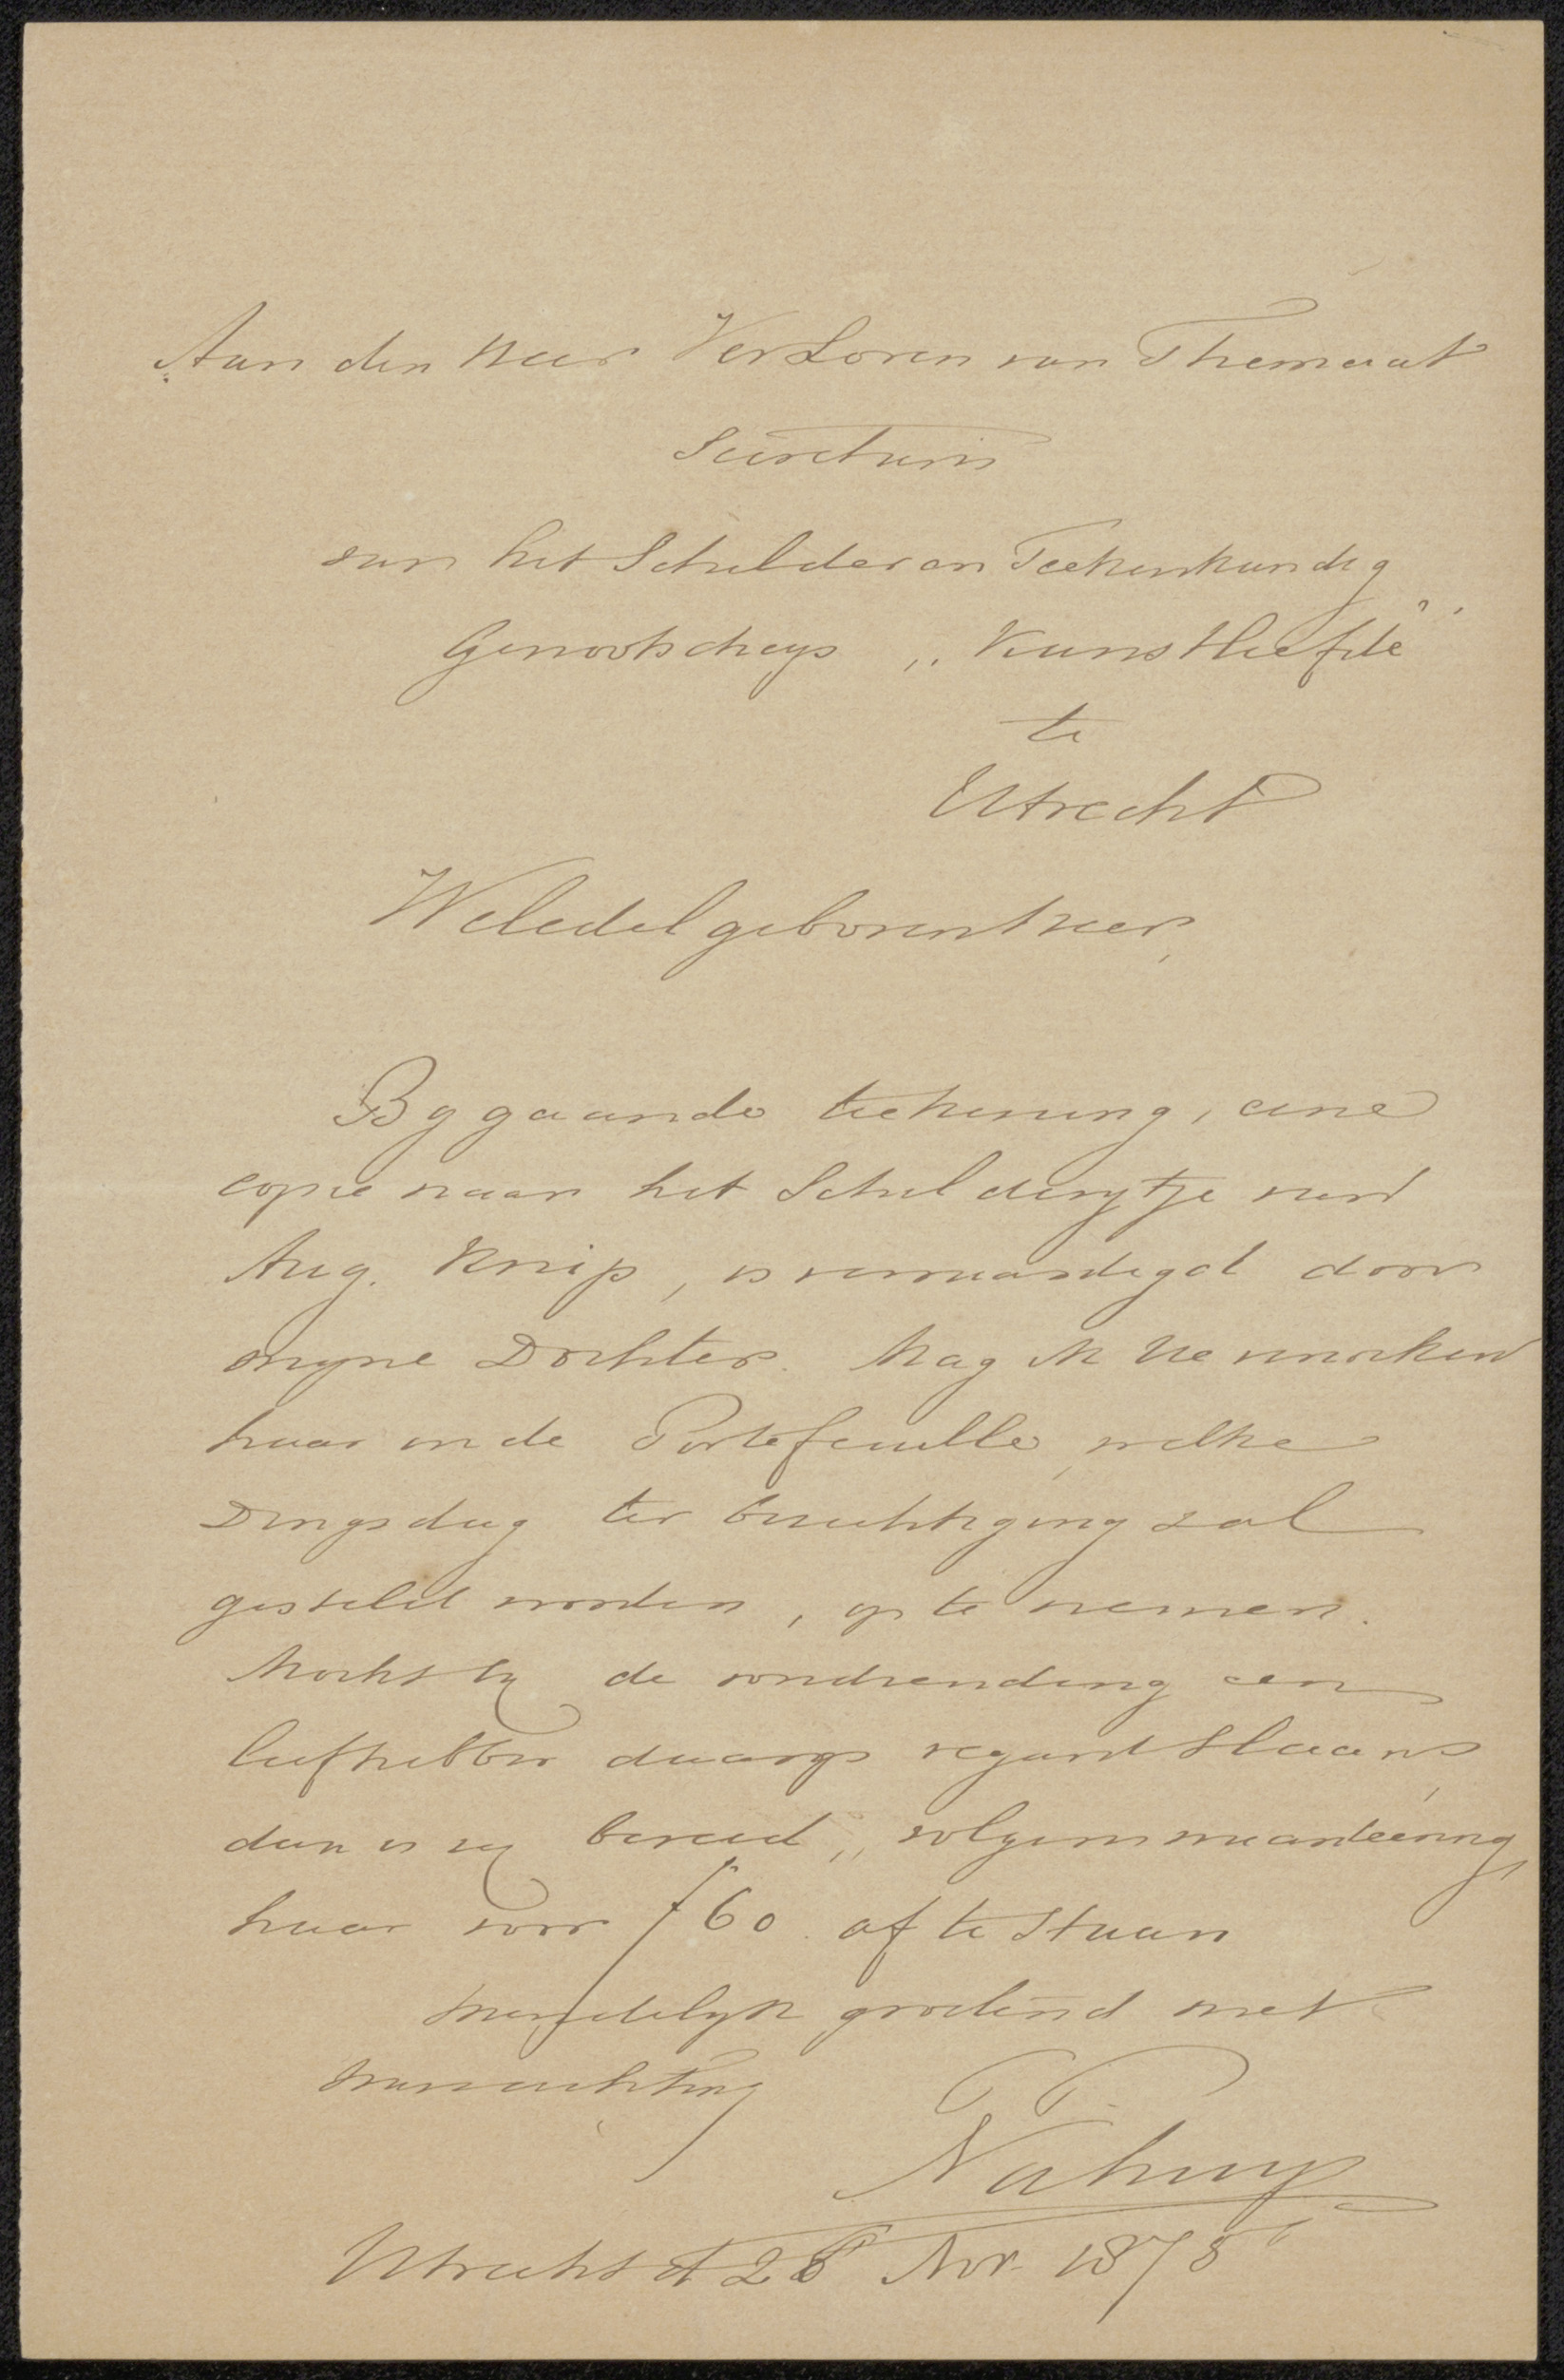 Aan den Heer VerLoren van Themaat
Secretaris
van het Schilder en Teekenkundig
Genootschap „Kunstliefde"
te
Utrecht
Weledelgeboren Heer,
Bygaande teekening, eene
copie naar het Schilderytje van
Aug. Knip, is vervaardigd door
myne Dochter. Mag ik Ue verzoeken
haar in de Portefeuille, welke
Dingsdag ter bezichtiging zal
gesteld worden, op te nemen.
Mocht by de rondzending een
liefhebber daarop regard slaan,
dan is zy bereid,
haar voor f 60. af te staan
Vriendelyk groetend met
hoogachting
T. T.
Nahuys
Utrecht d 28 Nov. 1878